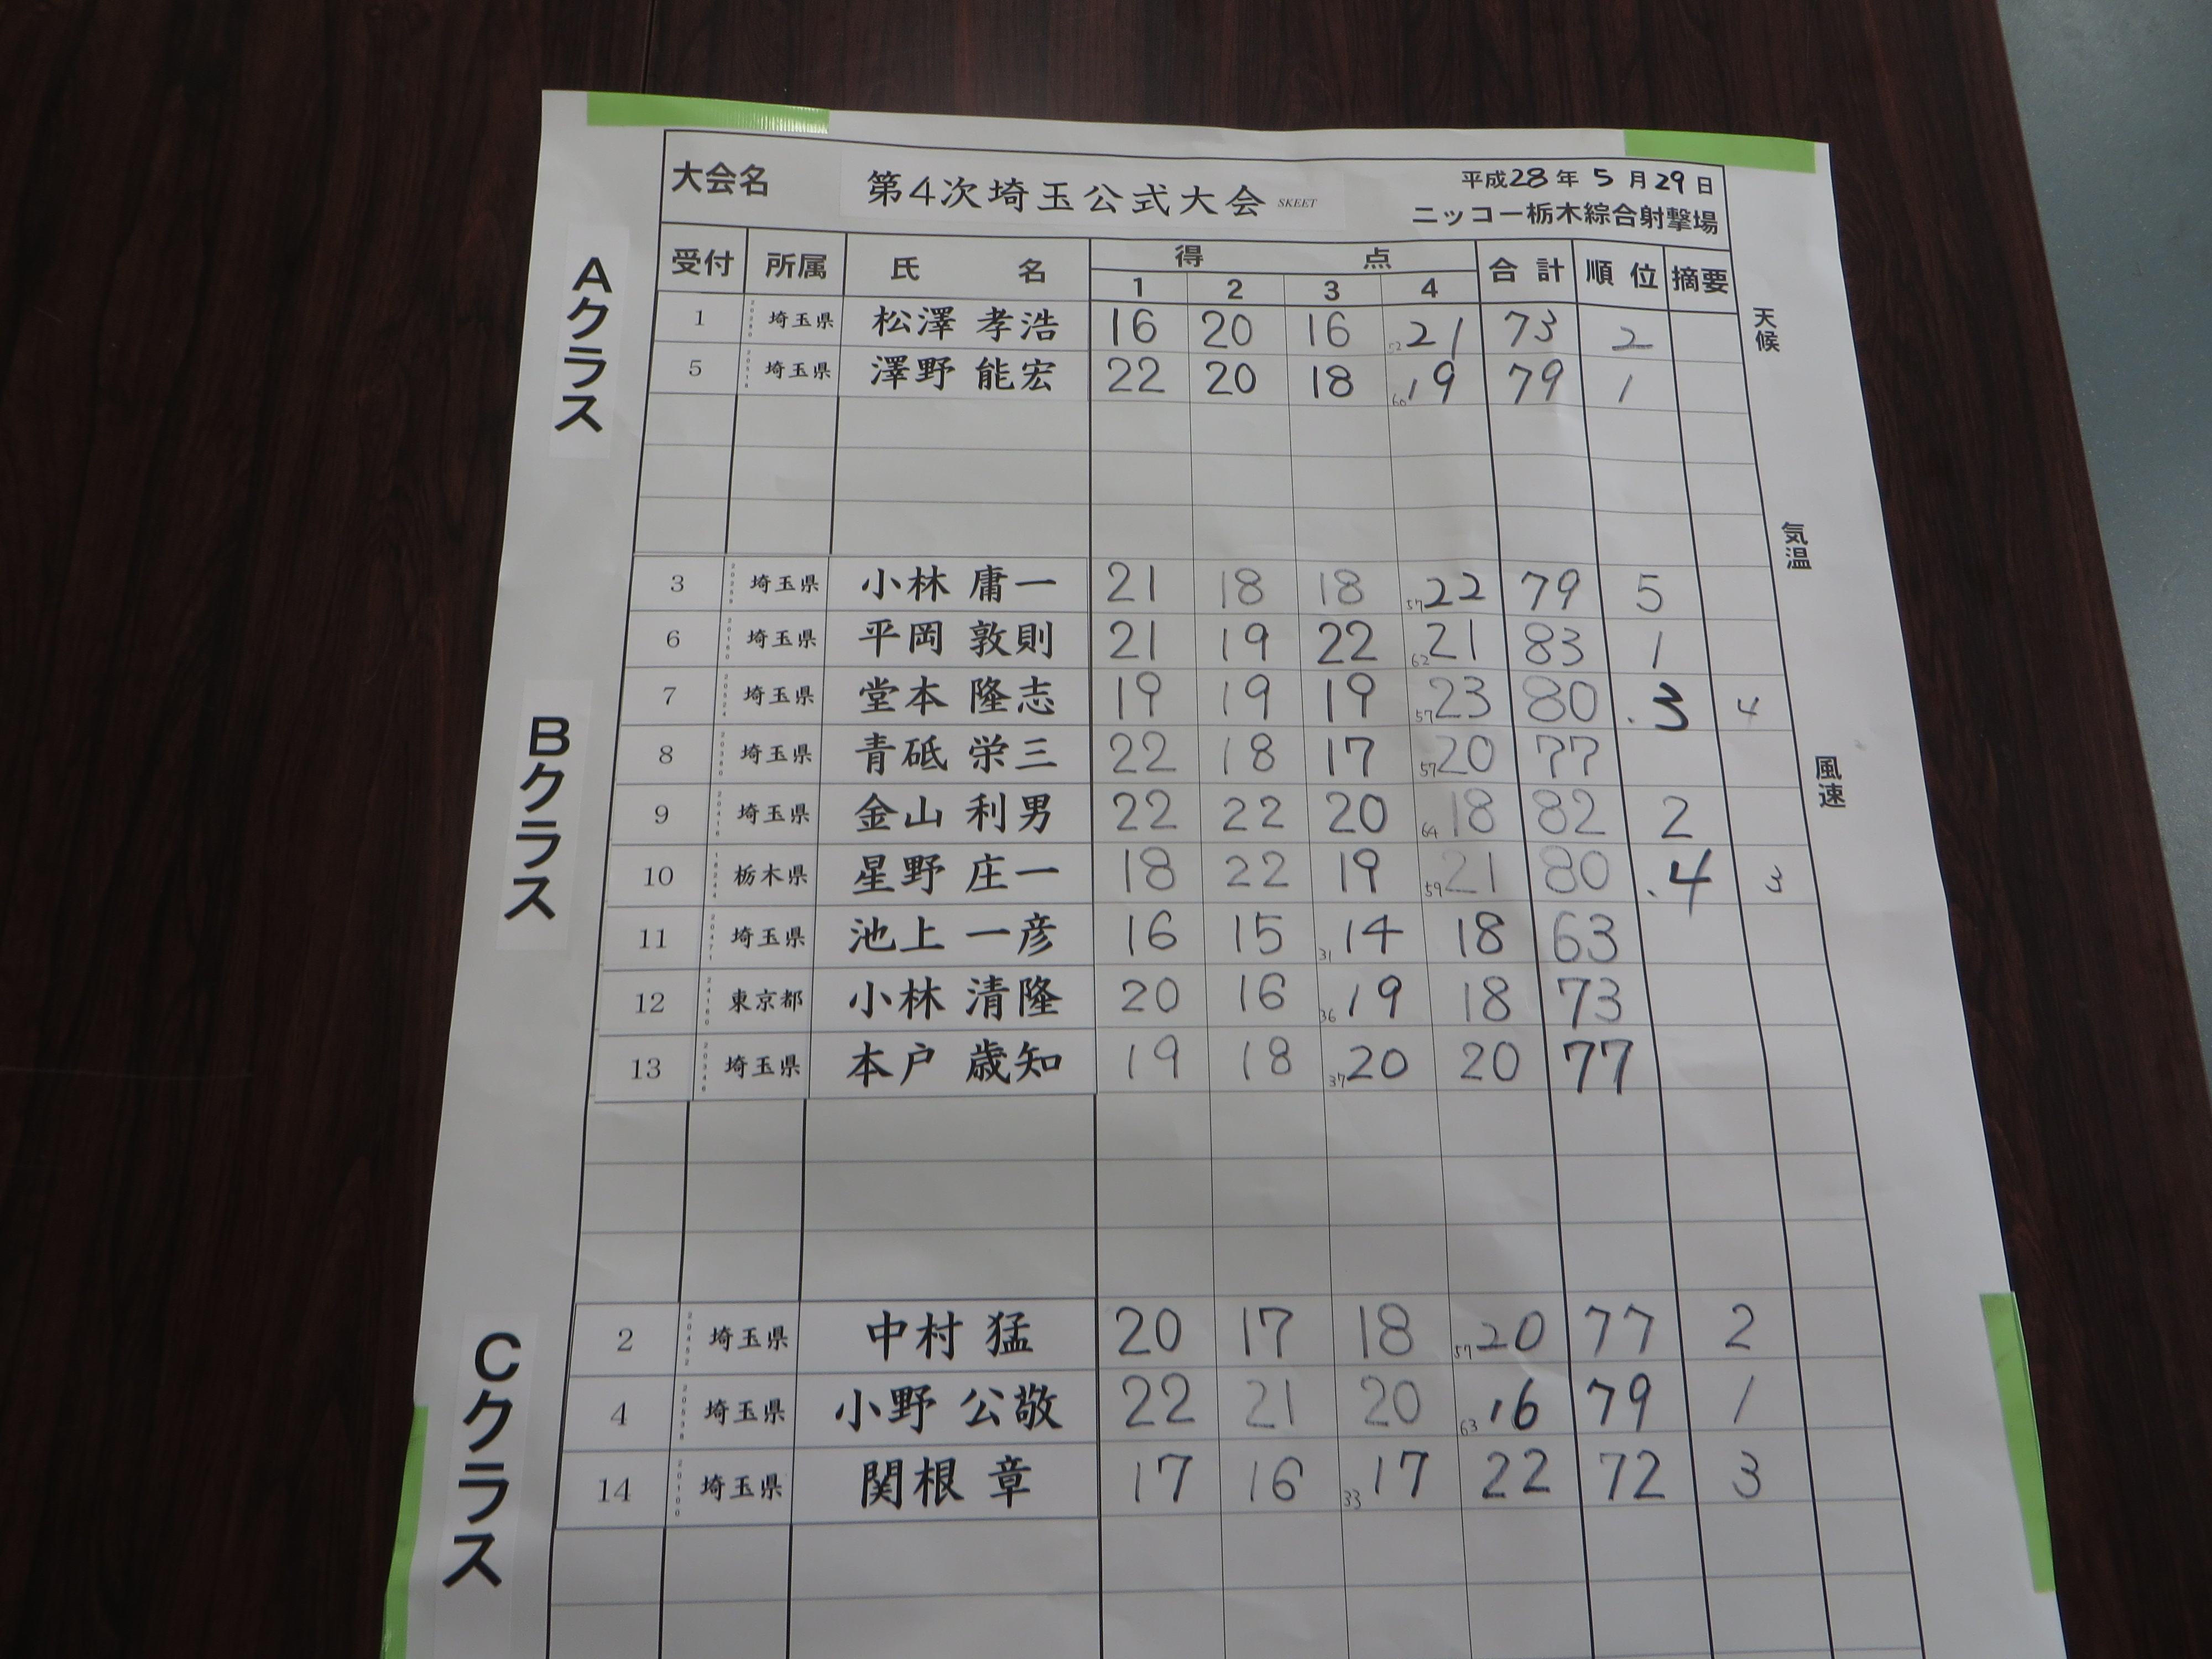 大会名 第4次埼玉公式大会 SKEET 平成28年 5月29日
ニッコー栃木綜合射撃場
受付 所属 氏 名 得 点 合計 順位 摘要
1 2 3 4
Aクラス
1 埼玉県 松澤 孝浩 16 20 16 52 21 73 2
5 埼玉県 澤野 能宏 22 20 18 60 19 79 1
Bクラス
3 埼玉県 小林 庸一 21 18 18 57 22 79 5
6 埼玉県 平岡 敦則 21 19 22 62 21 83 1
7 埼玉県 堂本 隆志 19 19 19 57 23 80 .3 4
8 埼玉県 青砥 栄三 22 18 17 57 20 77
9 埼玉県 金山 利男 22 22 20 64 18 82 2
10 栃木県 星野 庄一 18 22 19 59 21 80 .4 3
11 埼玉県 池上 一彦 16 15 31 14 18 63
12 東京都 小林 清隆 20 16 36 19 18 73
13 埼玉県 本戸 歳知 19 18 37 20 20 77
Cクラス
2 埼玉県 中村 猛 20 17 18 57 20 77 2
4 埼玉県 小野 公敬 22 21 20 63 16 79 1
14 埼玉県 関根 章 17 16 33 17 22 72 3
天候
気温
風速